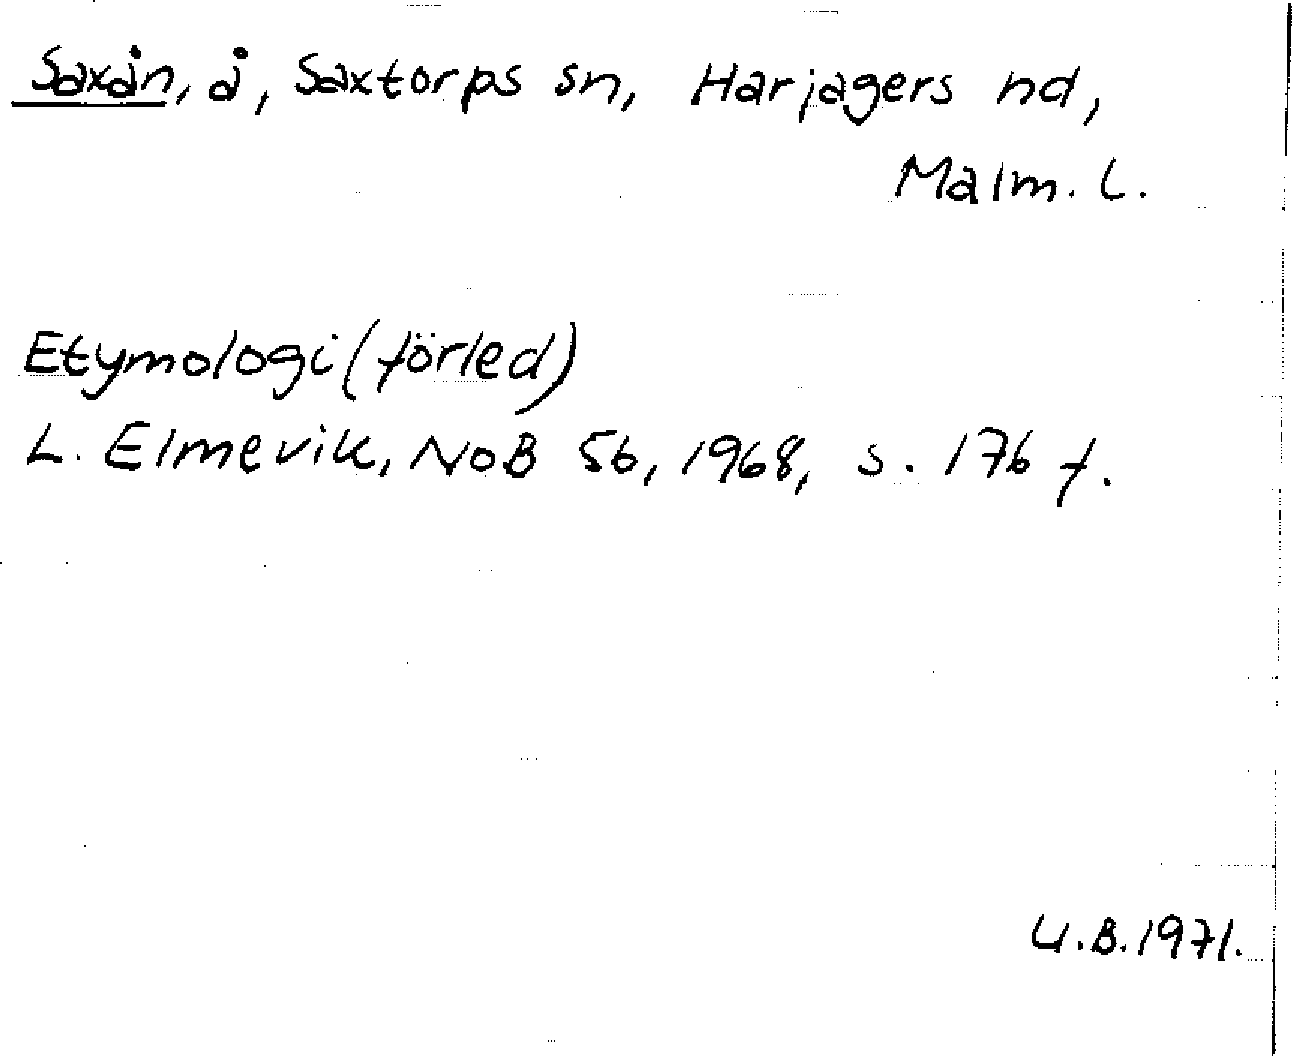 Saxån, å, Saxtorps sn, Harjagers hd,
Malm. L.
Etymologi (förled)
L. Elmevik, NoB 56, 1968, s. 176 f.
U.B. 1971.